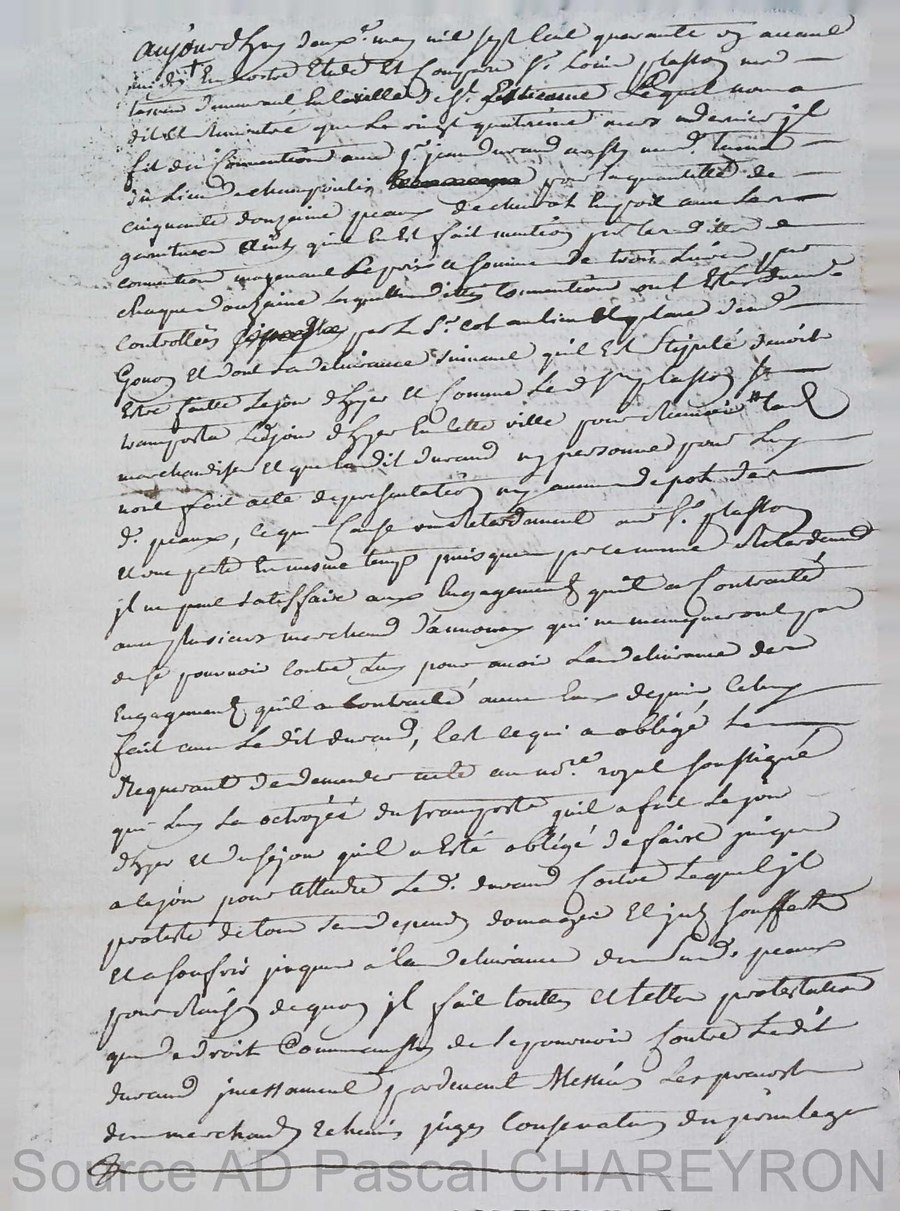 aujourdhuy deuxe. may mil sept cent quarante un avant
midy En nostre Etude Est Comparu Sr. Plasson
de la ville de St. Estienne Lequel nous a
dit Et Remontré que Le vingt quatrième mars dernier jl
fit des Conventions avec Sr. jean durand
du Lieu de champoulin pour La quantité de
cinquante douzaine peaux de chevrot En poil avec Les
garniture Ainsy quil En Est fait mention par Lesdittes
convention moyenant Le prix et somme de trois Livres par
chaque douzaine Lesquelles dittes Conventions ont Esté
controllées par Le Sr.
Et dont La delivrance suivant quil Est Stipulé devoit
Estre faitte Le jour dhyer Et Comme Led. Sr. plasson se
transporta Led. jour dhyer En cette ville pour Recevoir
marchandises Et que Ledit durand ny personne pour Luy
nont fait acte de presentation ny aucun depot des
d. peaux, ce qui Cause un Retardement au Sr. plasson
Et une perte En mesme temps puisque par ce mesme Retardement
jl ne peut satisffaire aux Engagements quil a Contracté
avec plusieurs marchand dannonay qui ne manqueront pas
de se pourvoir contre Luy pour avoir La delivrance des
Engagements quil a contracté avec Eux depuis celuy
fait avec Ledit durand, Cest ce qui a obligé Le
Requerant de demander acte au nore. royal soussigné
qui Luy La octroyés du transporte quil a fait Le jour
dhyer Et du séjour quil a Esté obligé de faire jusques
a ce jour pour attendre Led. durand Contre Lequel jl
proteste de tous Ses depends domages Et souffert
Et a souffrir jusques à La delivrance desd. peaux
pour Raison de quoy jl fait touttes Et telles protestation
que de droit Comme aussy de se pourvoir Contre Ledit
durand jncessament pardevant Messieurs Les prevost
des marchands Echevins juges Conservateurs des privileges
Source AD Pascal CHAREYRON